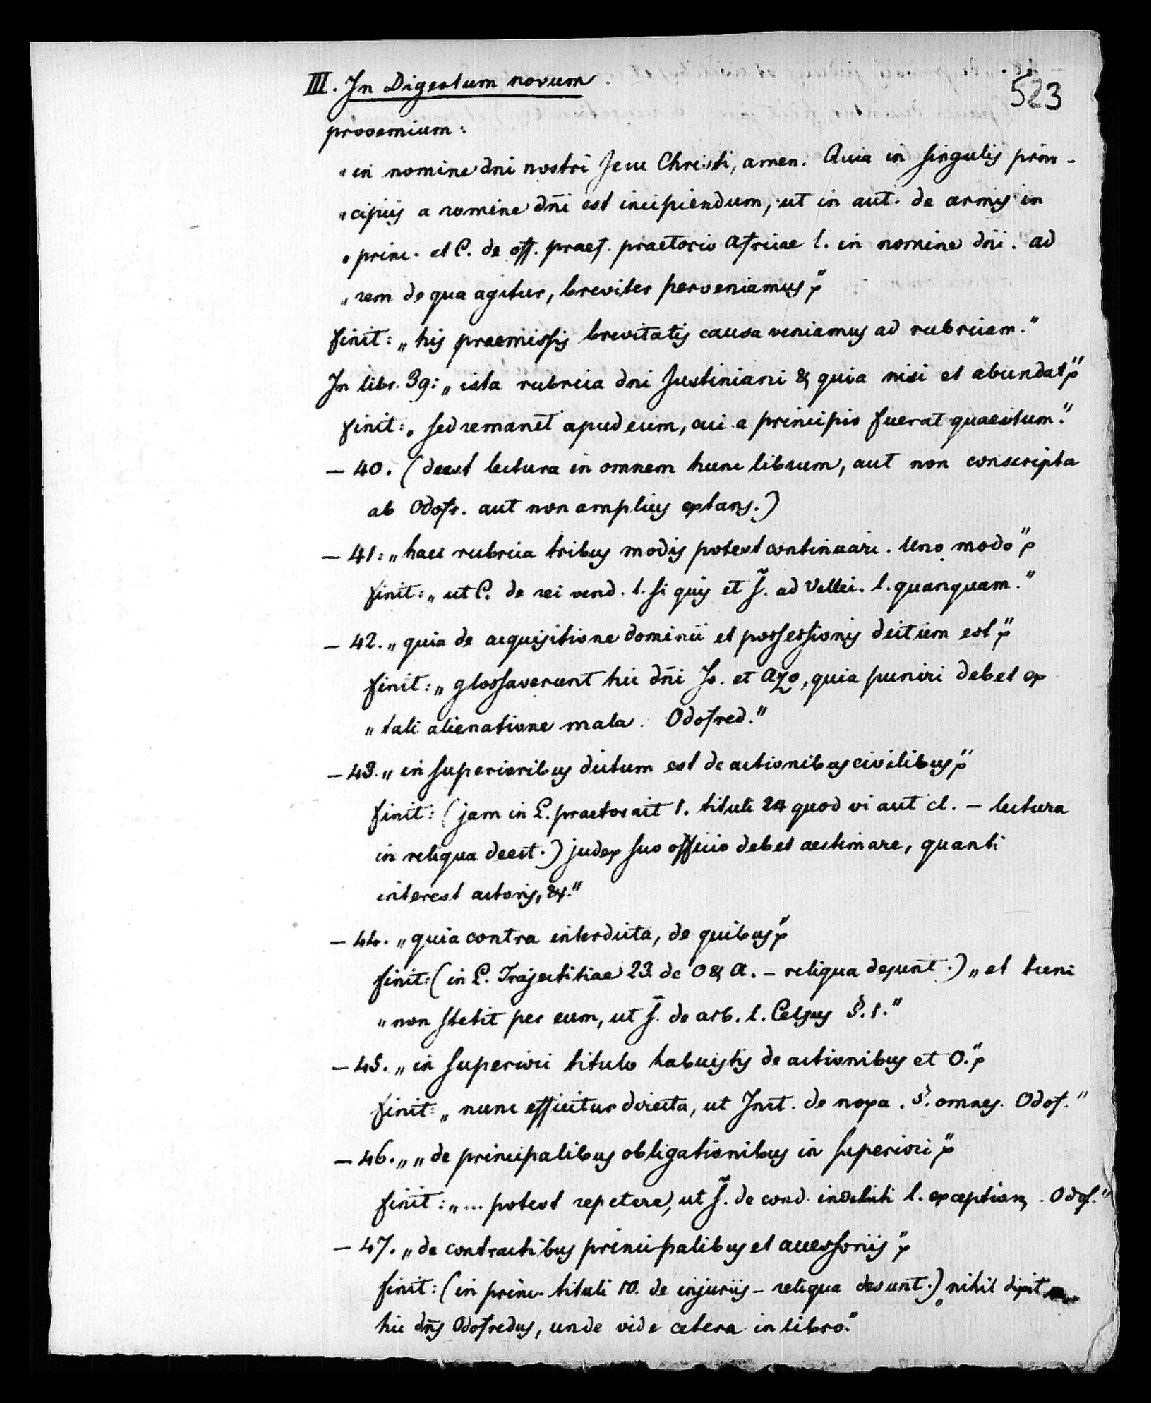 523
III. In Digestum novum.
prooemium:
„in nomine dni nostri Jesu Christi, amen. Quia in singulis prin-
„cipiis a nomine dñi est incipiendum, ut in aut. de armis in
„princ. et C. de off. praef. praetorio Africae l. in nomine dñi. ad
„rem de qua agitur, breviter perveniamus“;
finit: „his praemissis brevitatis causa veniamus ad rubricam.“
In libr. 39: „ista rubrica dni Justiniani & quia nisi et abundat“;
finit: „sed remanet apud eum, cui a principio fuerat quaesitum.“
— 40. (deest lectura in omnem hunc librum, aut non conscripta
ab Odofr. aut non amplius extans.)
— 41: „haec rubrica tribus modis potest continuari. Uno modo“;
finit: „ut C. de rei vend. l. si quis et s̃. ad Vellei. l. quanquam.“
— 42. „quia de acquisitione dominii et possessionis dictum est“;
finit: „glossaverunt hic dñi Jo. et Azo, quia puniri debet ex
„tali alienatione mala. Odofred.“
— 43. „in superioribus dictum est de actionibus civilibus“;
finit: (jam in L. praetor ait 1. tituli 24 quod vi aut cl. — lectura
in reliqua deest.) judex suo officio debet aestimare, quanti
interest actoris, &.“
— 44. „quia contra interdicta, de quibus“;
finit: (in L. Trajectitiae 23. de O & A. — reliqua desunt.) „et tunc
„non stetit per eum, ut s̃. de arb. l. Celsus §. 1.“
— 45. „in superiori titulo habuistis de actionibus et O.“;
finit: „nunc efficitur directa, ut Inst. de noxa. §. omnes. Odof.“
— 46. „„de principalibus obligationibus in superiori“;
finit: „... potest repetere, ut s̃. de cond. indebiti l. exception. Odof.“
— 47. „de contractibus principalibus et accessoriis“;
finit: (in princ. tituli 10. de injuriis — reliqua desunt.) „nihil dixit
hic dñs Odofredus, unde vide cetera in libro.“